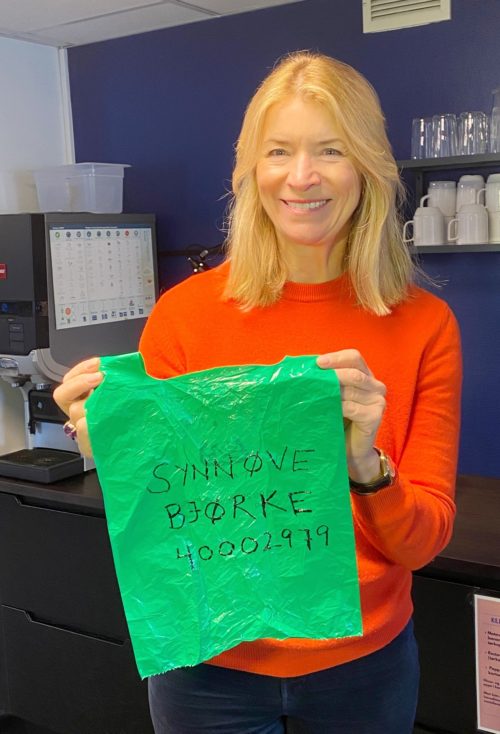 SYNNØVE
BJØRKE
40002979